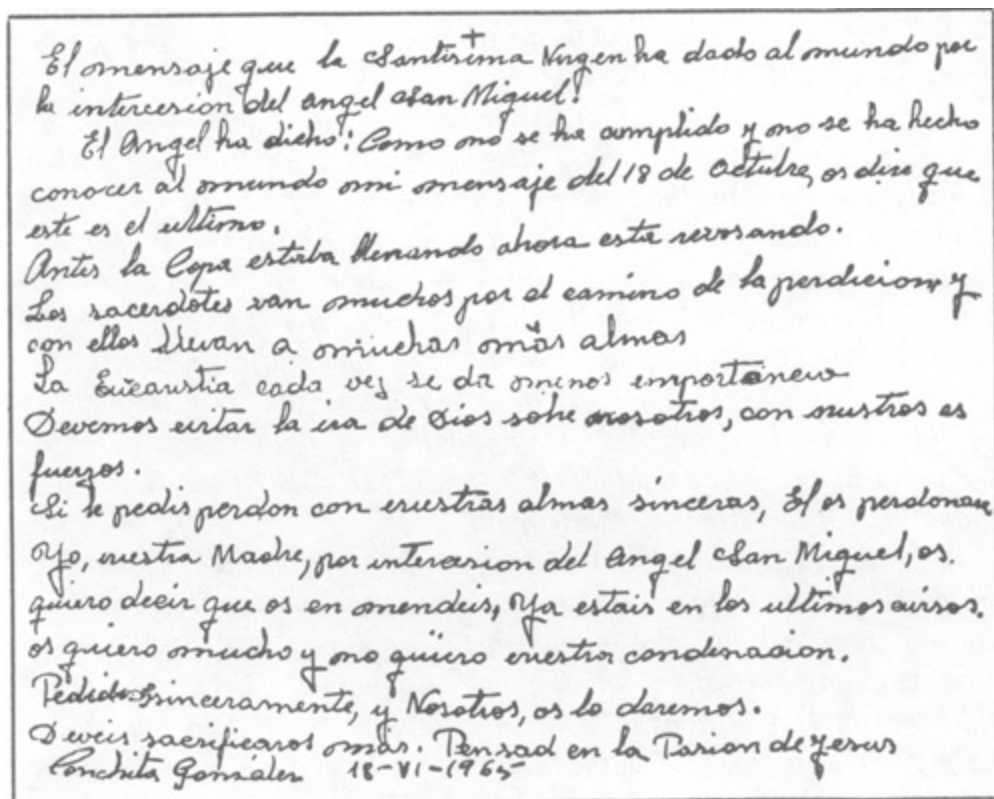 +
El mensaje que la Santisima Virgen ha dado al mundo por
la intercesion del angel San Miguel!
El Angel ha dicho: Como no se ha cumplido y no se ha hecho
conocer al mundo mi mensaje del 18 de Octubre, os dire que
este es el ultimo.
Antes la Copa estaba llenando ahora esta revosando.
Los sacerdotes van muchos por el camino de la perdicion y
con ellos llevan a muchas más almas
La Eucaristia cada vez se da menos importancia
Devemos evitar la ira de Dios sobre nosotros, con nuestros es
fuerzos.
Si le pedis perdon con vuestras almas sinceras, El os perdonara
Yo, vuestra Madre, por intercesion del Angel San Miguel, os
quiero decir que os en mendeis, Ya estais en los ultimos avisos.
os quiero mucho y no quiero vuestra condenacion.
Pedidnos sinceramente, y Nosotros, os lo daremos.
Deveis sacrificaros más. Pensad en la Pasion de Jesus
Conchita González 18-VI-1965